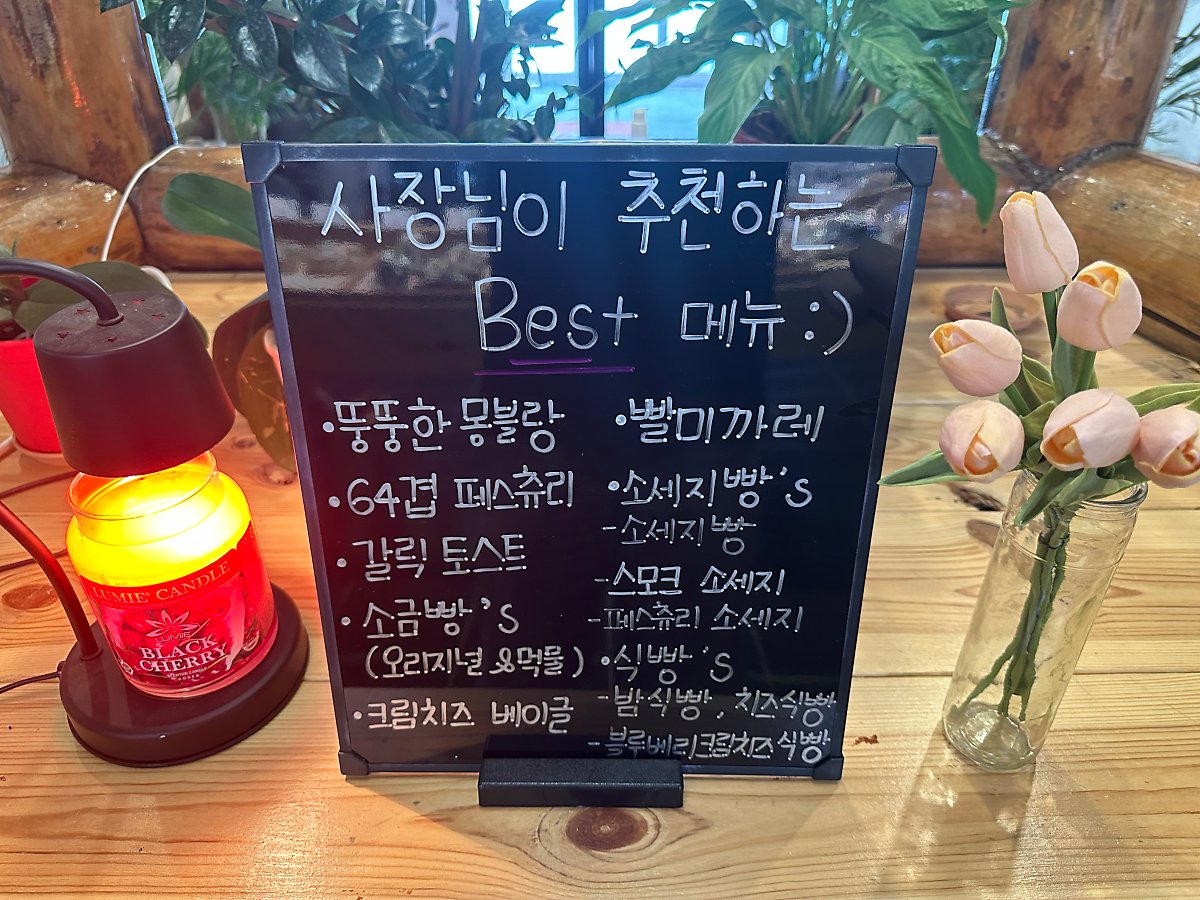 사장님이 추천하는
Best 메뉴 :)
•뚱뚱한 몽블랑
•64겹 페스츄리
•갈릭 토스트
•소금빵's
(오리지널 &먹물)
•크림치즈 베이글
•빨미까레
•소세지빵's
-소세지빵
-스모크 소세지
-페스츄리 소세지
•식빵's
-밤식빵, 치즈식빵
-블루베리크림치즈식빵
LUMIE' CANDLE
LUMIE'
BLACK
CHERRY
SCENTED CANDLE